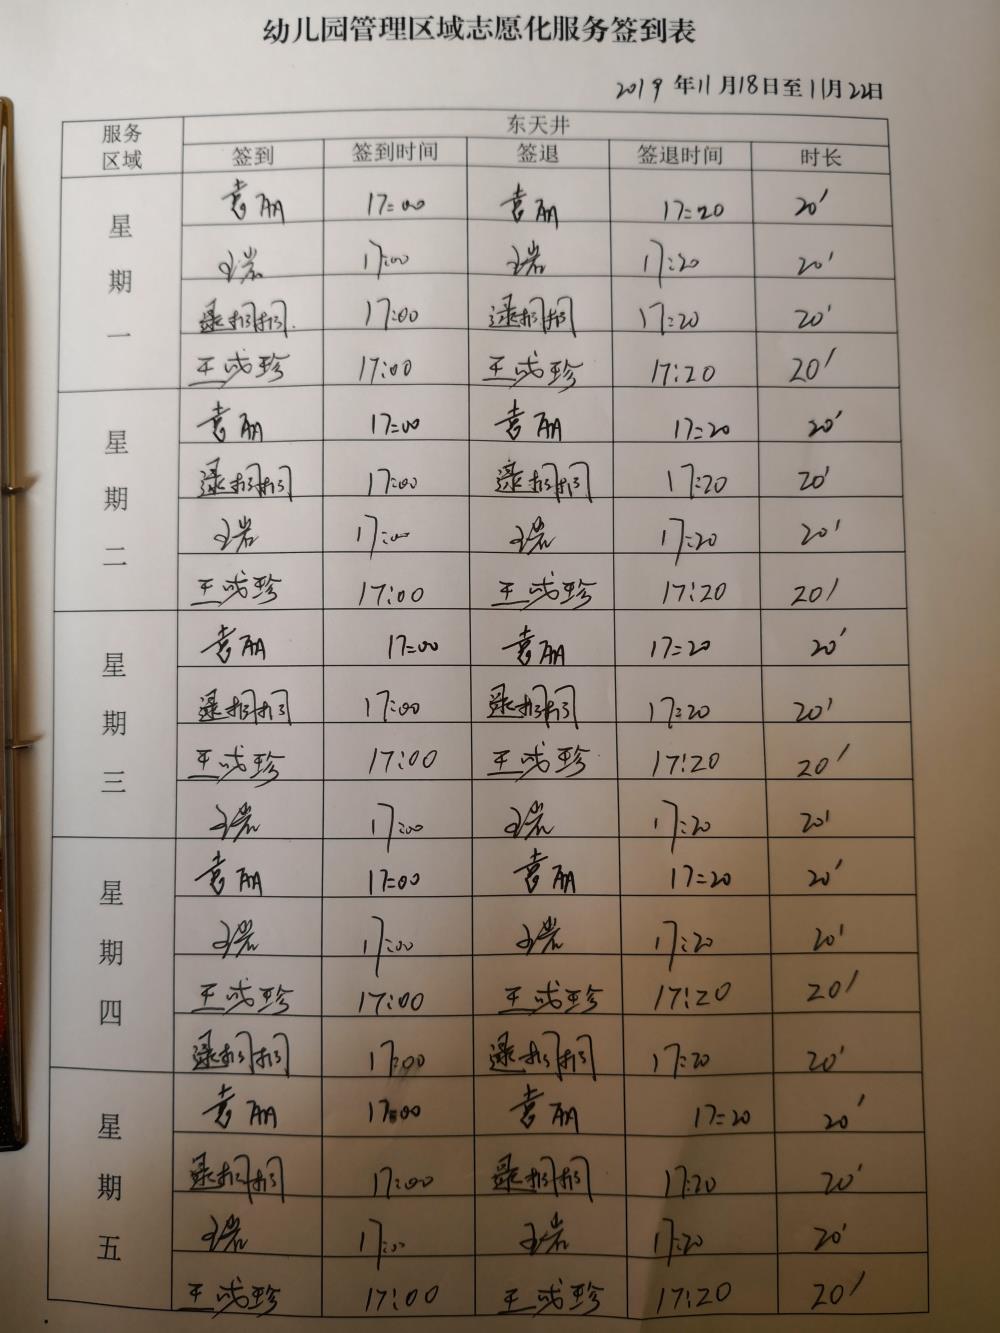 幼儿园管理区域志愿化服务签到表
2019年11月18日至11月22日
服务区域 东天井
签到 签到时间 签退 签退时间 时长
星期一
袁丽 17:00 袁丽 17:20 20'
王岩 17:00 王岩 17:20 20'
逯栩栩 17:00 逯栩栩 17:20 20'
王成珍 17:00 王成珍 17:20 20'
星期二
袁丽 17:00 袁丽 17:20 20'
逯栩栩 17:00 逯栩栩 17:20 20'
王岩 17:00 王岩 17:20 20'
王成珍 17:00 王成珍 17:20 20'
星期三
袁丽 17:00 袁丽 17:20 20'
逯栩栩 17:00 逯栩栩 17:20 20'
王成珍 17:00 王成珍 17:20 20'
王岩 17:00 王岩 17:20 20'
星期四
袁丽 17:00 袁丽 17:20 20'
王岩 17:00 王岩 17:20 20'
王成珍 17:00 王成珍 17:20 20'
逯栩栩 17:00 逯栩栩 17:20 20'
星期五
袁丽 17:00 袁丽 17:20 20'
逯栩栩 17:00 逯栩栩 17:20 20'
王岩 17:00 王岩 17:20 20'
王成珍 17:00 王成珍 17:20 20'